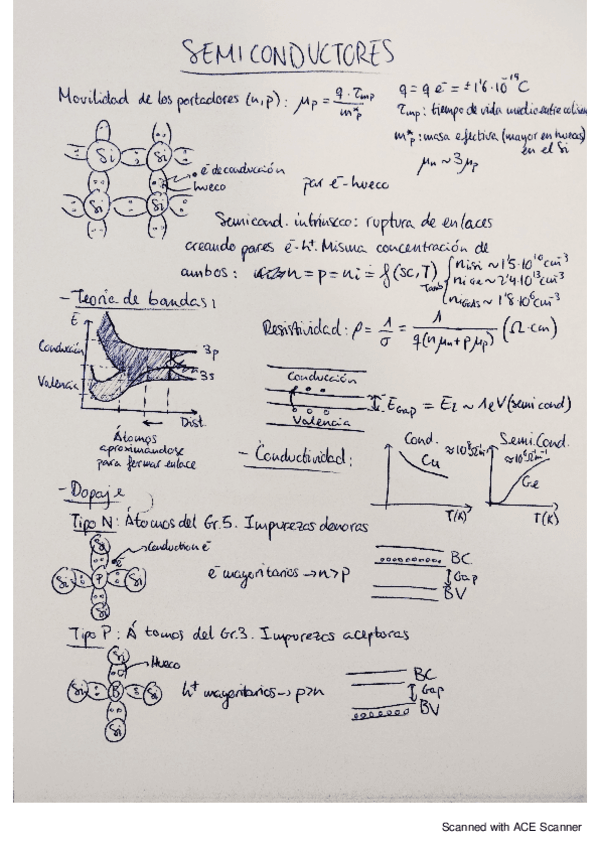 SEMICONDUCTORES
Movilidad de los portadores (n,p): μp = q·τmp / m*p
q = q e⁻ = ±1'6·10⁻¹⁹ C
τmp: tiempo de vida medio entre colision
m*p: masa efectiva (mayor en huecos)
en el Si
μn ~ 3μp
Si Si
e⁻ de conducción
hueco
par e⁻-hueco
Si Si
Semicond. intrínseco: ruptura de enlaces
creando pares e⁻-h⁺. Misma concentración de
ambos: n = p = ni = f(SC,T)
Tamb
ni Si ~ 1'5·10¹⁰ cm⁻³
ni Ge ~ 2'4·10¹³ cm⁻³
ni GaAs ~ 1'8·10⁶ cm⁻³
- Teoría de bandas:
E
Conducción
Valencia
3p
3s
Dist.
Átomos
aproximándose
para formar enlace
Resistividad: ρ = 1/σ = 1 / q(n μn + p μp) (Ω·cm)
Conducción
Valencia
EGap = Ei ~ 1eV (semicond)
- Conductividad:
Cond.
Cu
T(K)
Semi.Cond.
Ge
T(K)
- Dopaje
Tipo N: Átomos del Gr.5. Impurezas donoras
Si
conduction e⁻
e⁻
Si P Si
Si
e⁻ mayoritarios → n>p
BC
Gap
BV
Tipo P: Átomos del Gr.3. Impurezas aceptoras
Si
Hueco
Si B Si
Si
h⁺ mayoritarios → p>n
BC
Gap
BV
Scanned with ACE Scanner